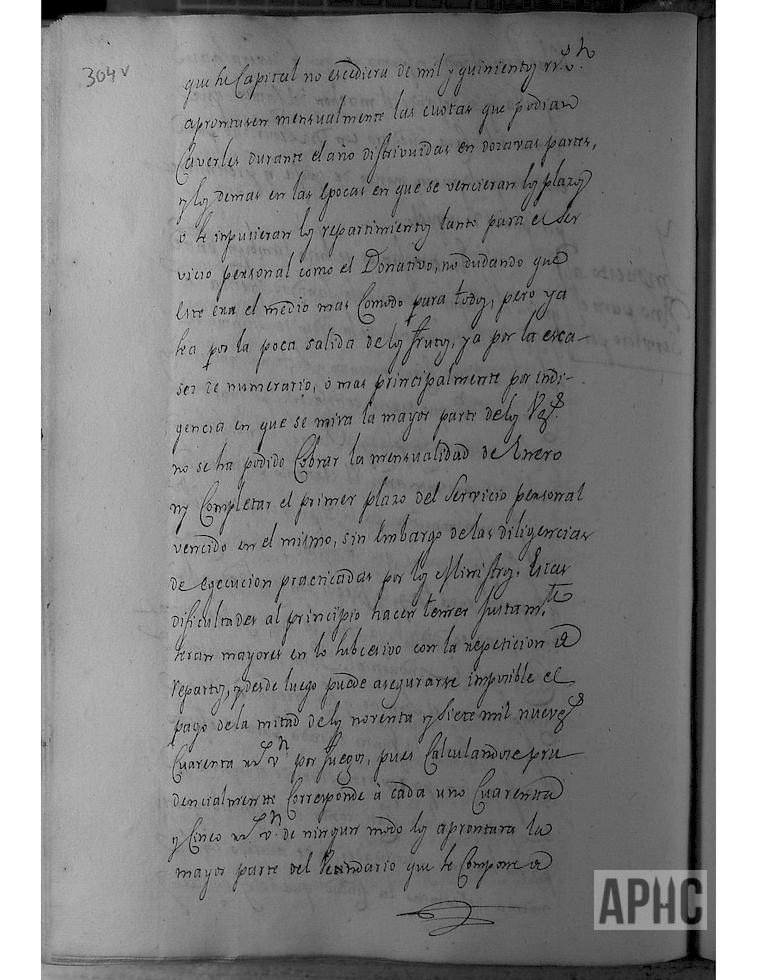 304v
que su Capital no escediera de mil y quinientos rr.s v.n
aprontasen mensualmente las cuotas que podian
Caverles durante el año distrivuidas en dozavas partes,
y los demas en las epocas en que se vencieran los plazos
o se inpusieran los repartimientos tanto para el Ser
vicio personal como el Donativo, no dudando que
este era el medio mas Comodo para todos, pero ya
sea por la poca salida de los frutos, ya por la esca-
sez de numerario, o mas principalmente por indi-
gencia en que se mira la mayor parte delos Vz.s
no se ha podido Cobrar la mensualidad de Enero
ny Completar el primer plazo del Servicio personal
vencido en el mismo, sin Embargo delas diligencias
de egecucion practicadas por los Ministros. Estas
dificultades al principio hacen temer Justam.te
seran mayores en lo subcesivo con la repeticion de
repartos, y desde luego puede asegurarse imposible el
pago dela mitad delos noventa y siete mil nuevez.s
Cuarenta rr.s v.n por fuegos, pues Calculandose pru
dencialmentte Corresponde à cada uno Cuarenta
y Cinco rr.s v.n de ningun modo los aprontara la
mayor parte del Vecindario que se Compone de
APHC